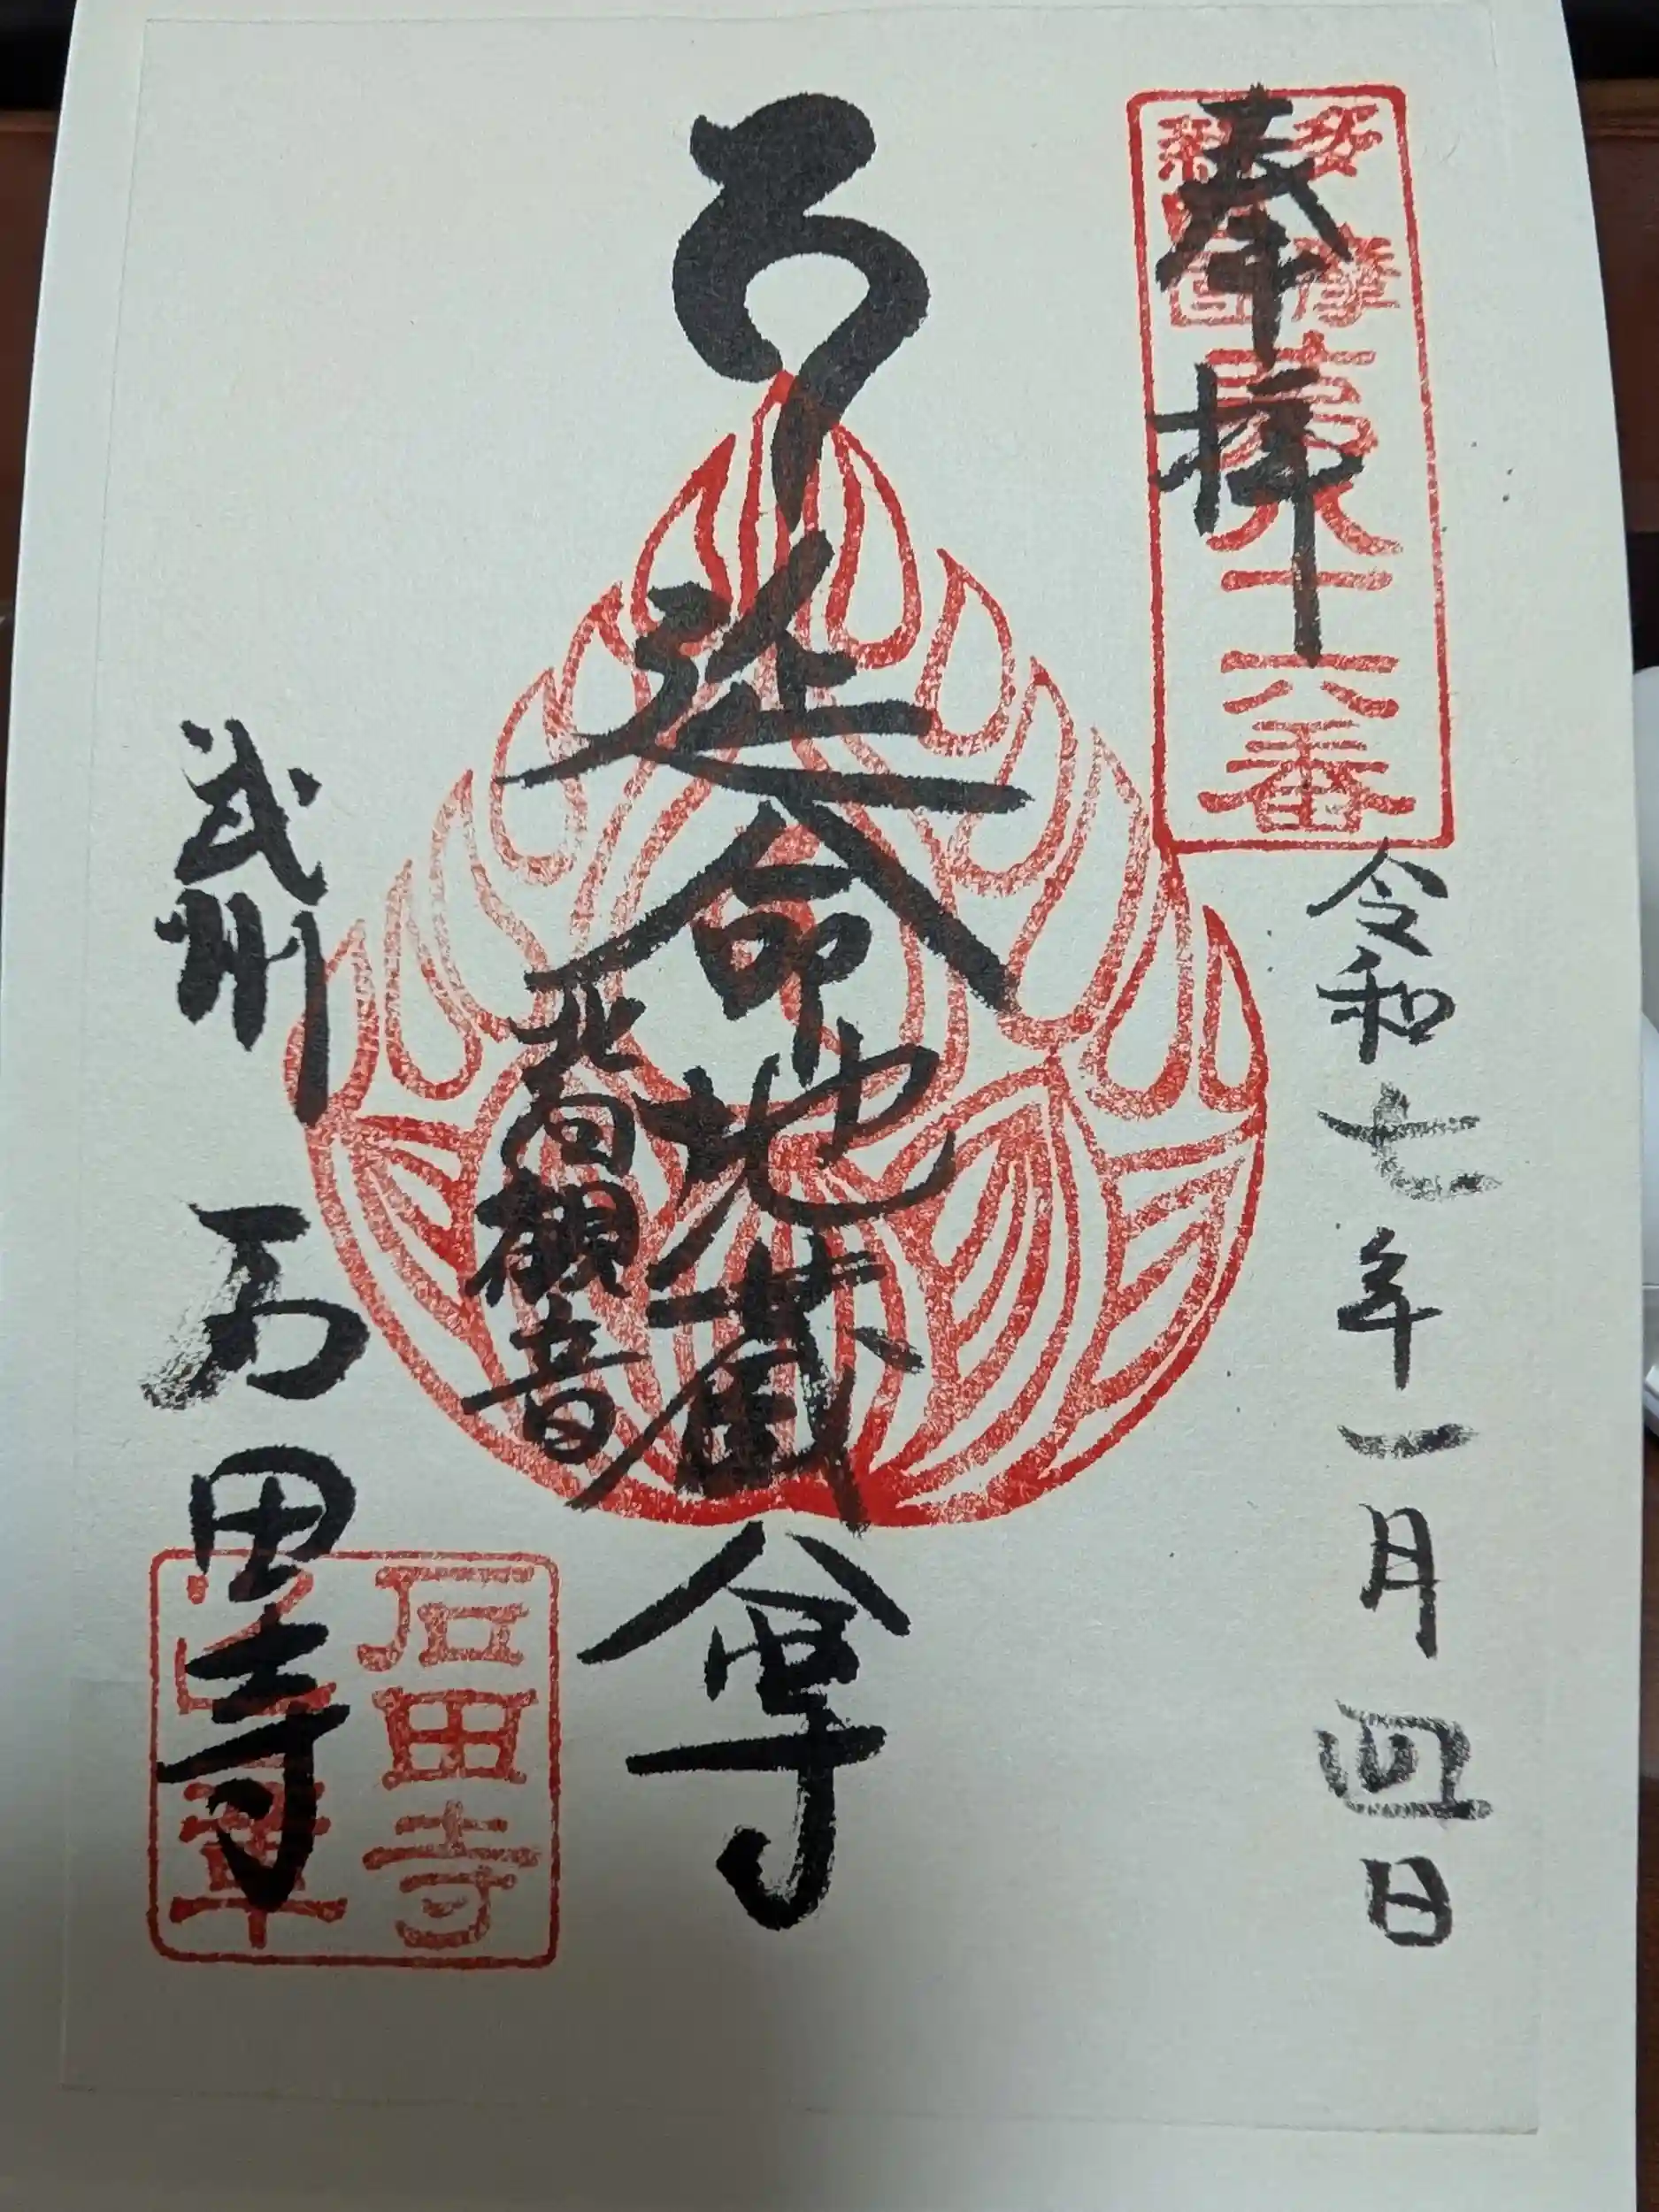 奉拝
令和七年一月四日
延命地蔵尊
北向観音
武州 石田寺
石田寺